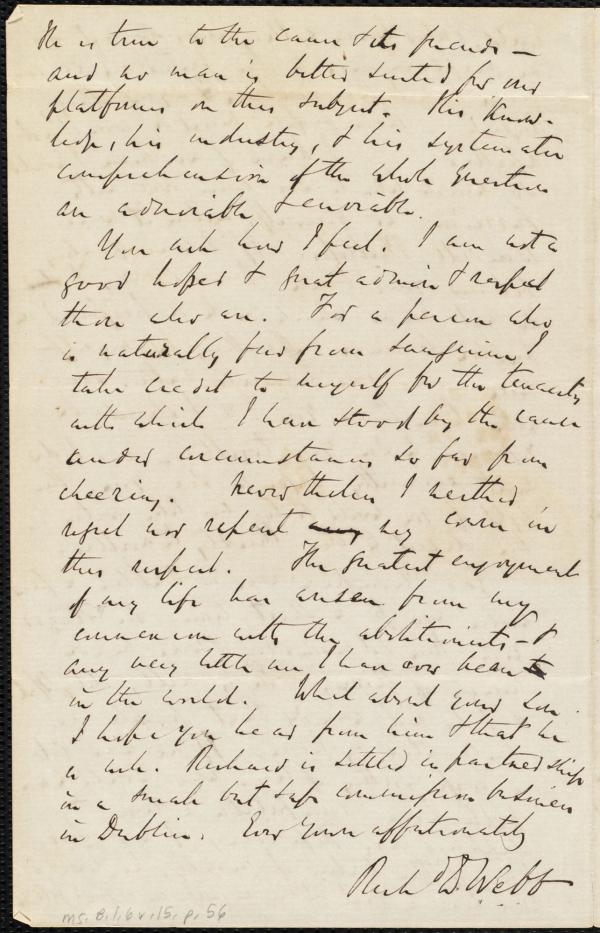 He is true to the cause & its friends —
and no man is better suited for our
platforms on this subject. His know-
ledge, his industry, & his systematic
comprehension of the whole question
are admirable & enviable.
You ask how I feel. I am not a
good hoper & great admire & respect
those who are. For a person who
is naturally far from sanguine I
take credit to myself for the tenacity
with which I have stood by the cause
under circumstances so far from
cheering. Nevertheless I neither
regret nor repent my course in
this respect. The greatest enjoyment
of my life has arisen from my
connexion with the abolitionists - &
any very little use I have ever been
in the world. What about your son.
I hope you hear from him & that he
is well. Richard is settled in partnership
in a small but safe commission business
in Dublin. Ever yours affectionately
Richd D. Webb
ms. B.1.6 v.15, p. 56